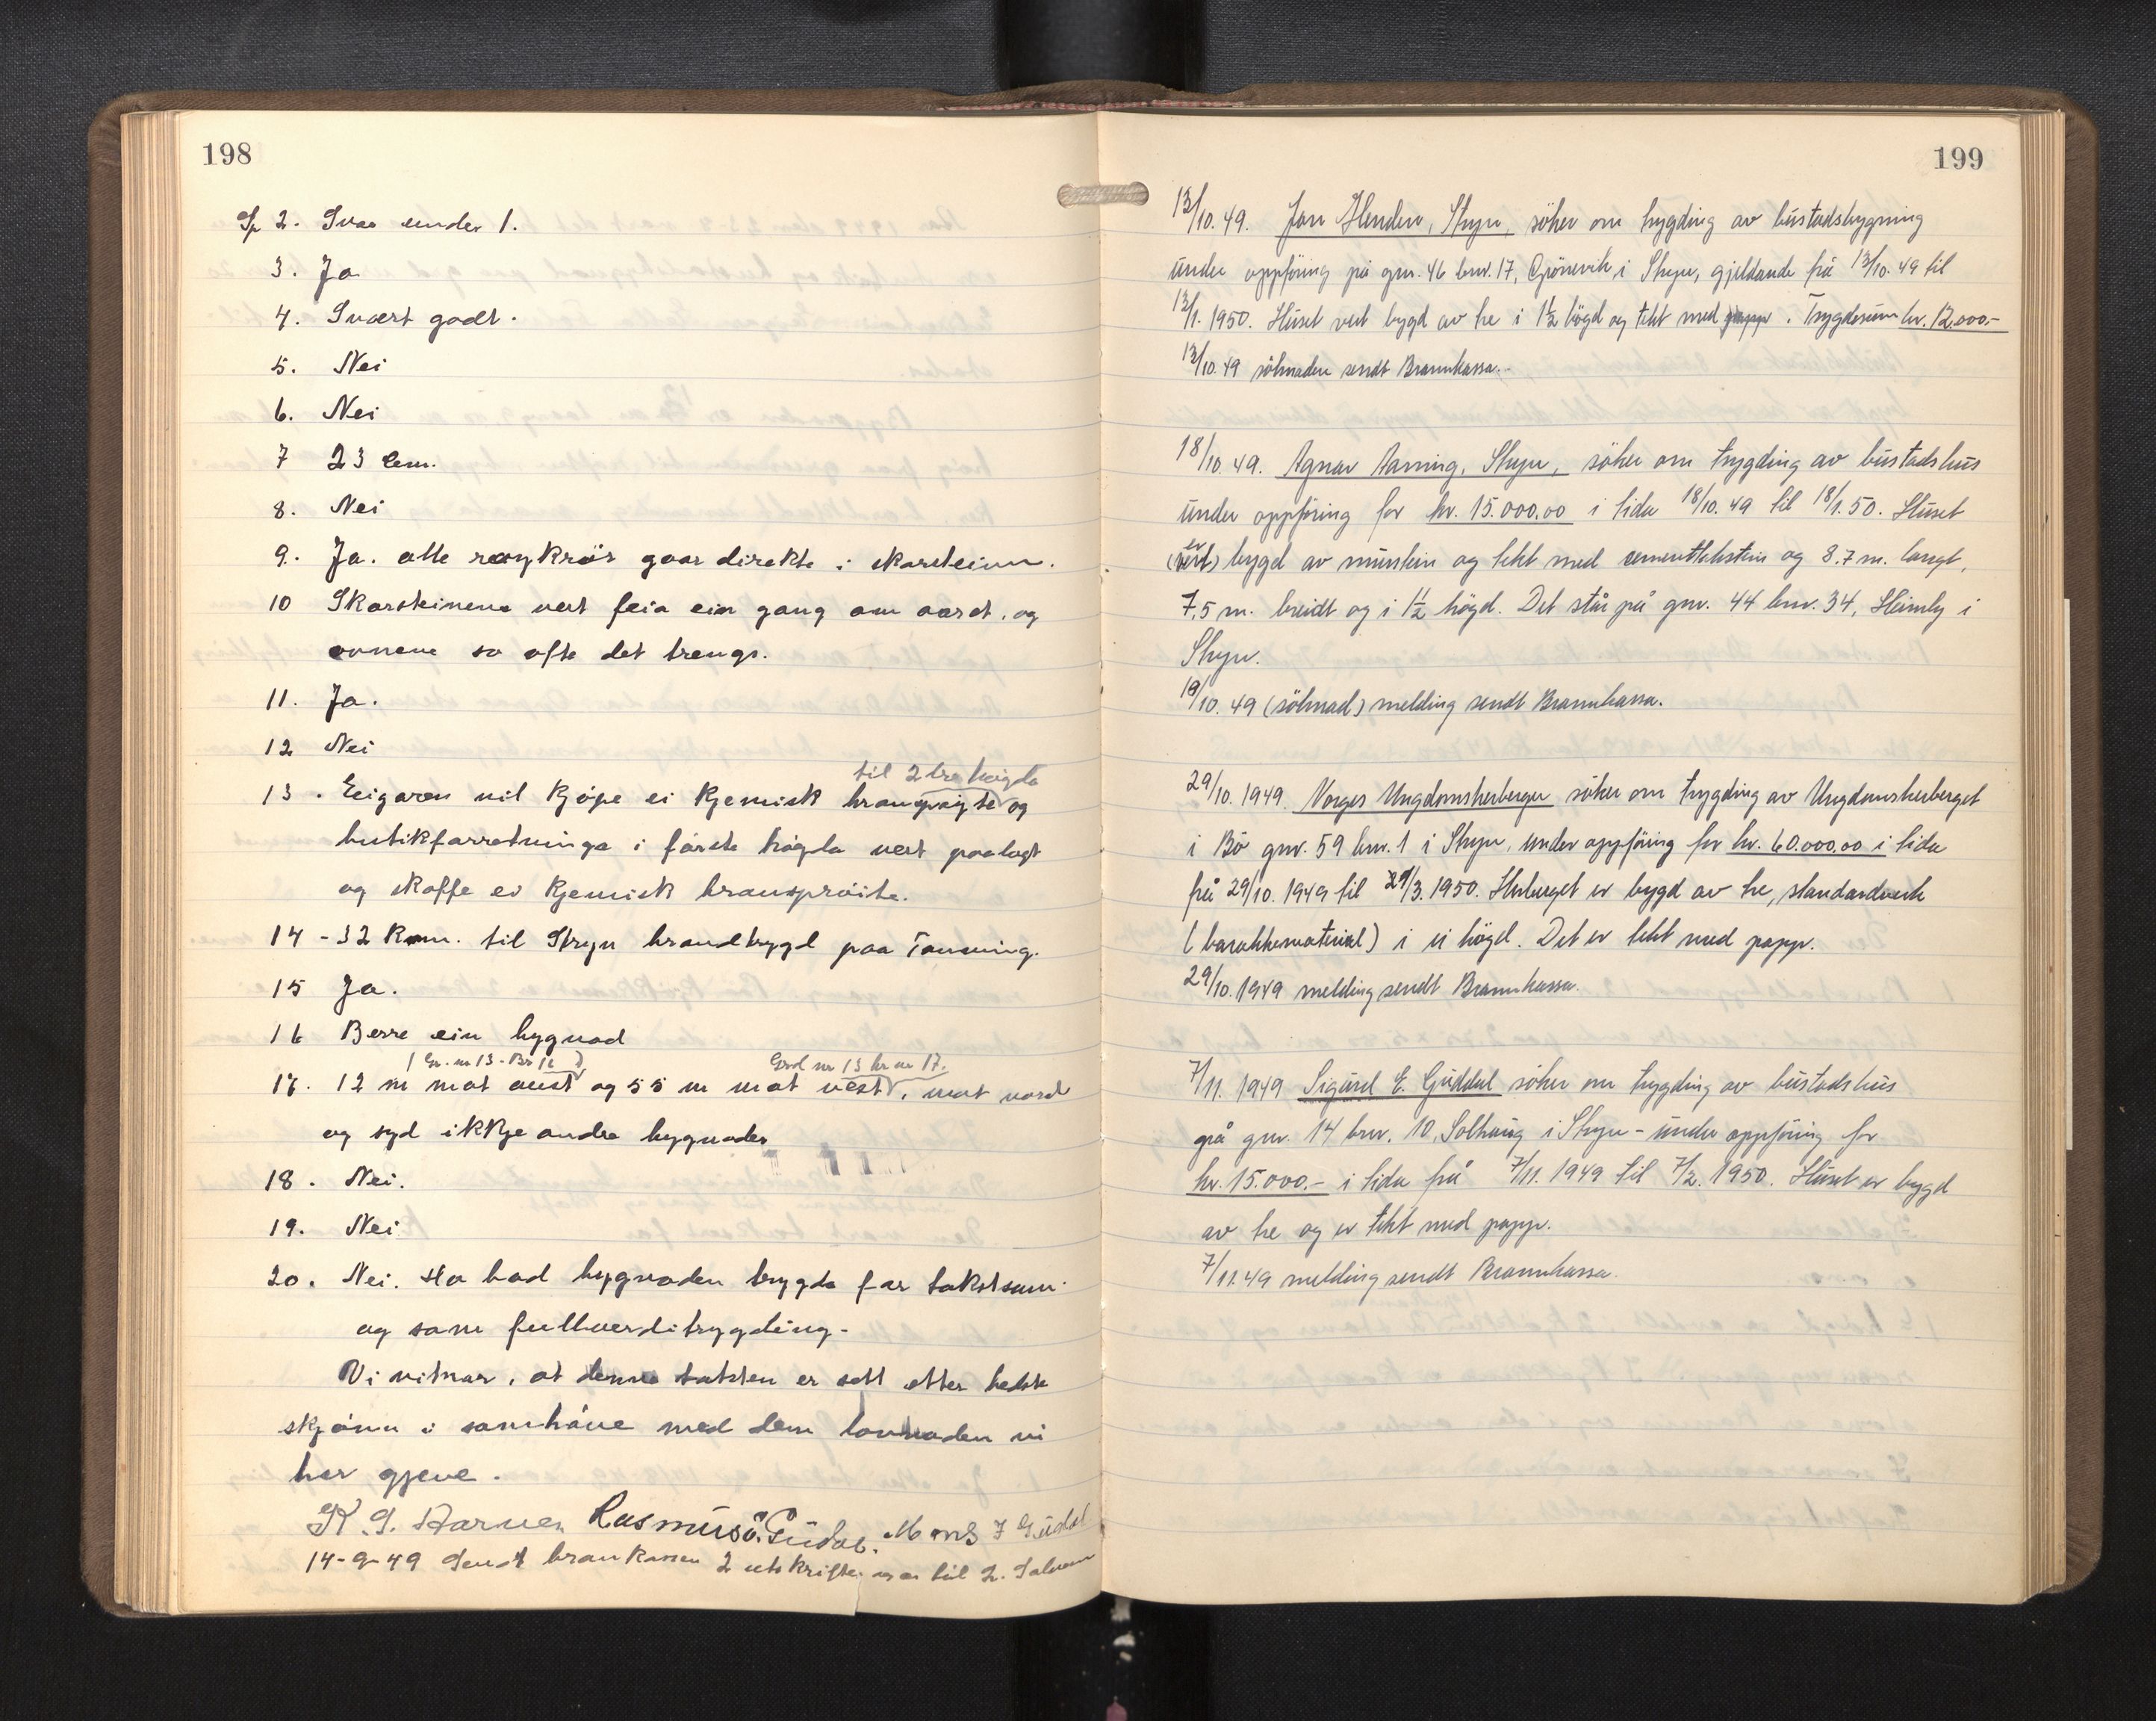 198
Sp 2. Svar under 1.
3. Ja
4. Svært godt.
5. Nei
6. Nei
7 23 Cm.
8. Nei
9. Ja. alle røykrör gaar direkte i skorsteinen.
10 Skorsteinene vert feia ein gang om aaret, og
ovnene so ofte det trengs.
11. Ja.
12 Nei
til 2dre høgda
13. Eigaren vil kjöpe ei kjemisk bransprøyte og
butikforretninga i förste högda vert paalagt
og skaffe ei kjemisk bransprøite.
14 - 32 Km. til Stryn brandtrygd paa Tonning.
15 Ja.
16 Berre ein bygnad
(Gr. nr 13 - Br 12) Grd nr 13 br nr 17.
17. 12 m mot aust og 55 m mot vest, mot nord
og syd ikkje andre bygnader
18. Nei.
19. Nei
20. Nei. Ho bad bygnaden trygda for takstsum
og som fullverditrygding.
Vi vitnar, at denne taksten er sett etter beste
skjönn i samhöve med dem lovnaden vi
har gjeve.
K. S. Aarnes Rasmus O. Gudal. Mons J Gudal
14-9-49 Sendt brankassen 2 utskrifter
199
13/10. 49. Jon Henden, Stryn, söker om trygding av bustadsbygning
under oppföring på gnr. 46 bnr. 17, Grönevik i Stryn, gjeldande frå 13/10. 49 til
13/1. 1950. Huset vert bygd av tre i 1½ högd og tekt med papp. Trygdesum kr. 12.000.-
13/10. 49 söknaden sendt Brannkassa.
18/10. 49. Agnar Aaning, Stryn, söker om trygding av bustadshus
under oppföring for kr. 15.000,00 i tida 18/10. 49 til 18/1. 50. Huset
er
(vert) bygd av murstein og tekt med cementtakstein og 8.7 m. langt,
7,5 m. breidt og i 1½ högd. Det står på gnr. 44 bnr. 34, Heimly i
Stryn.
19/10. 49 (söknad) melding sendt Brannkassa.
29/10. 1949. Norges Ungdomsherberger söker om trygding av Ungdomsherberget
i Bö gnr. 59 bnr. 1 i Stryn, under oppföring for kr. 60.000,00 i tida
frå 29/10. 1949 til 29/3. 1950. Herberget er bygd av tre, standardverk
(barakkemateriial) i ei högd. Det er tekt med papp.
29/10. 1949 melding sendt Brannkassa.
7/11. 1949 Sigurd E. Guddal söker om trygding av bustadshus
på gnr. 14 bnr. 10, Solhaug i Stryn - under oppföring for
kr. 15.000.- i tida frå 7/11. 1949 til 7/2. 1950. Huset er bygd
av tre og er tekt med papp.
7/11. 49 melding sendt Brannkassa.